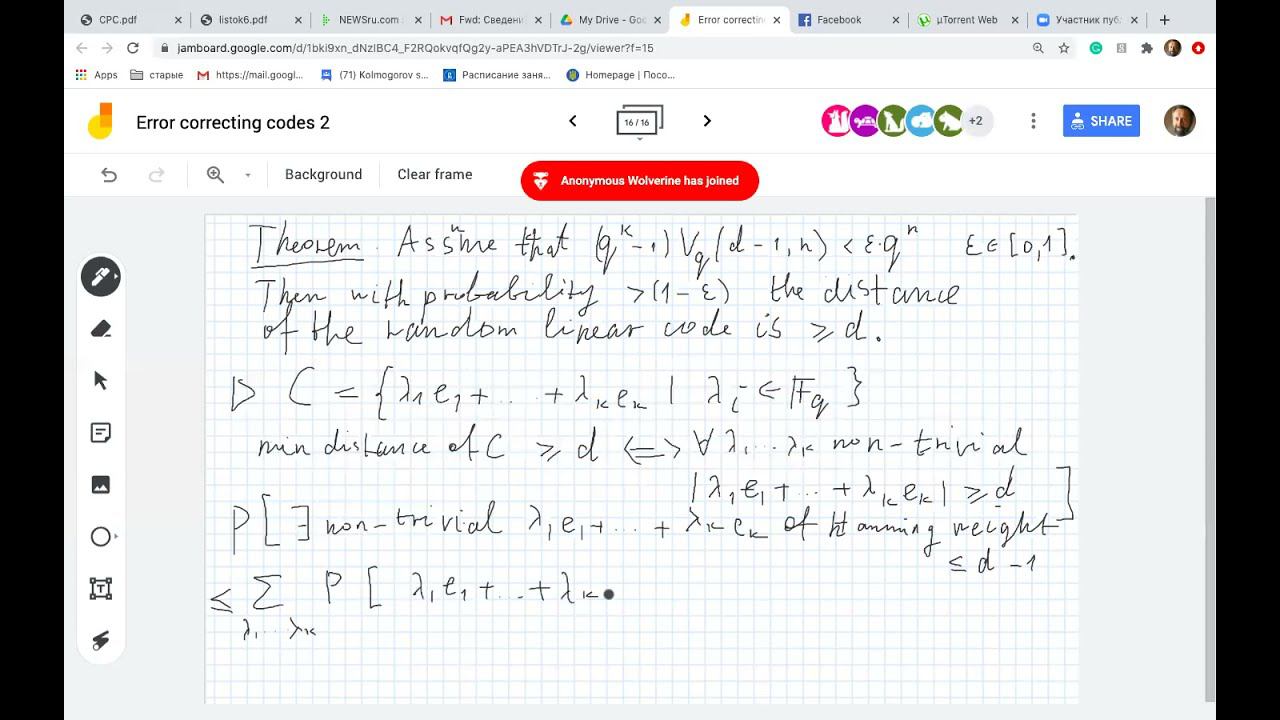 CPC.pdf
listok6.pdf
NEWSru.com
Fwd: Сведени
My Drive - Goo
Error correcting
Facebook
µTorrent Web
Участник публ
jamboard.google.com/d/1bki9xn_dNzlBC4_F2RQokvqfQg2y-aPEA3hVDTrJ-2g/viewer?f=15
Apps
старые
https://mail.googl...
(71) Kolmogorov s...
Расписание заня...
Homepage | Посо...
Error correcting codes 2
16 / 16
+2
SHARE
Background
Clear frame
Anonymous Wolverine has joined
Theorem. Assume that (q^k - 1) V_q (d-1, n) < ε·q^n ε∈[0,1].
Then with probability >(1-ε) the distance
of the random linear code is ≥ d.
▷ C = {λ₁e₁+...+λ_k e_k | λ_i ∈ 𝔽_q}
min distance of C ≥ d ⟺ ∀ λ₁...λ_k non-trivial
|λ₁e₁+...+λ_k e_k| ≥ d
P[∃ non-trivial λ₁e₁+...+λ_k e_k of Hamming weight ≤ d-1]
≤ Σ P[ λ₁e₁+...+λ_k
λ₁...λ_k